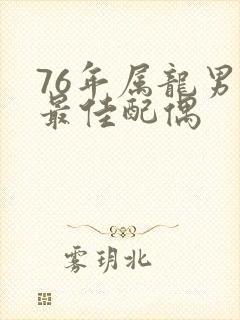 76年属龍男
最佳配偶
雾玥北